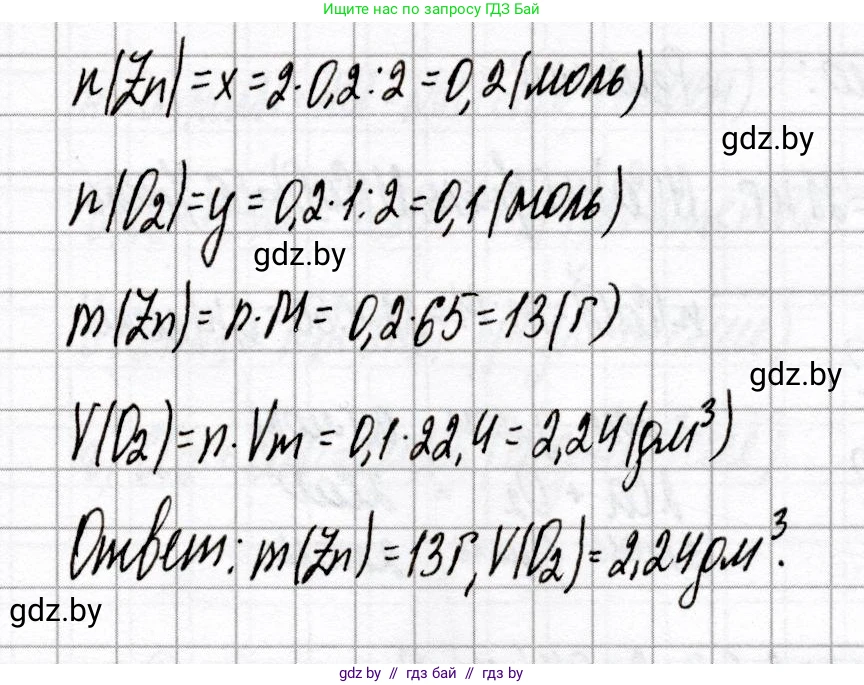 Ищите нас по запросу ГДЗ Бай
n(Zn) = x = 2·0,2:2 = 0,2 (моль)
gdz.by
n(O₂) = y = 0,2·1:2 = 0,1 (моль)
gdz.by
m(Zn) = n·M = 0,2·65 = 13 (г)
gdz.by
V(O₂) = n·Vm = 0,1·22,4 = 2,24 (дм³)
Ответ: m(Zn) = 13 г, V(O₂) = 2,24 дм³.
gdz.by
gdz by // гдз бай // гдз by